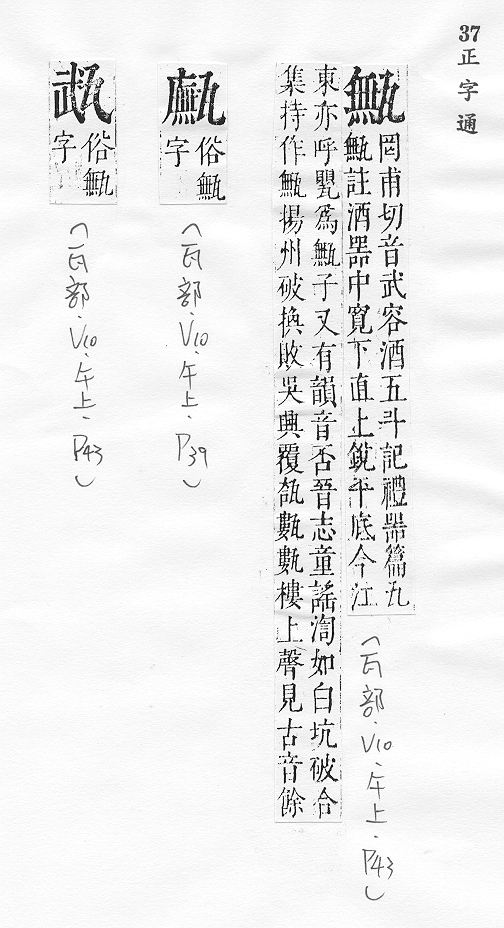 37 正字通
甒 罔甫切音武容酒五斗記禮器篇瓦
甒註酒器中寬下直上銳平底今江
東亦呼甖爲甒子又有韻音否晉志童謠訇如白坑破合
集持作甒揚州破換敗吳興覆瓿甊甊樓上聲見古音餘
（瓦部．V10．午上．P43）
俗甒
字
（瓦部．V10．午上．P39）
俗甒
字
（瓦部．V10．午上．P43）